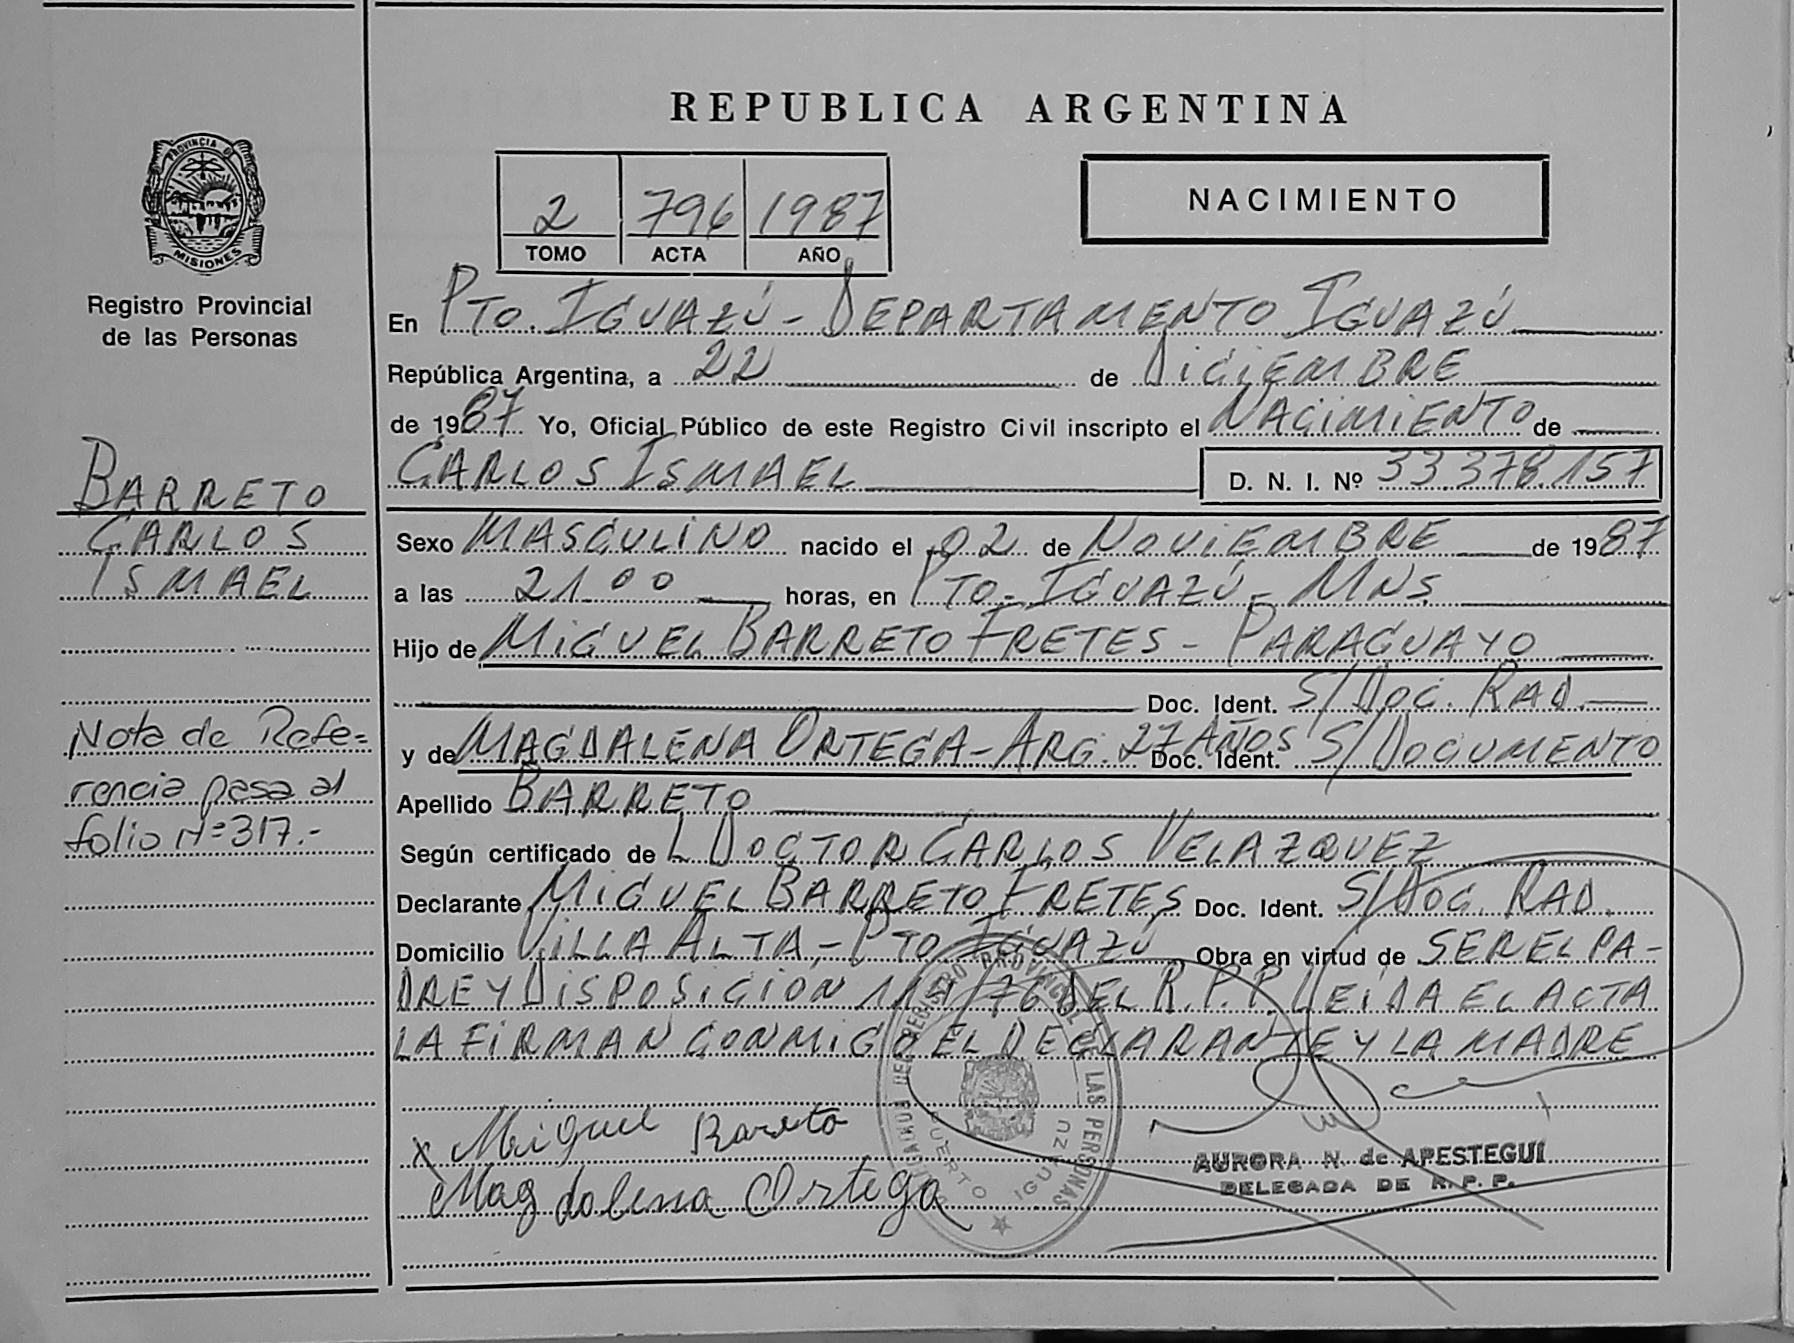 REPUBLICA ARGENTINA
PROVINCIA DE
MISIONES
Registro Provincial
de las Personas
2 796 1987
TOMO ACTA AÑO
NACIMIENTO
En Pto. Iguazú - Departamento Iguazú
República Argentina, a 22 de Diciembre
de 1987 Yo, Oficial Público de este Registro Civil inscripto el Nacimiento de
Carlos Ismael D. N. I. Nº 33.378.157
Sexo Masculino nacido el 02 de Noviembre de 1987
a las 21.00 horas, en Pto. Iguazú - Mns
Hijo de Miguel Barreto Fretes - Paraguayo
Doc. Ident. S/Doc. Rad.
y de Magdalena Ortega - Arg. 27 años Doc. Ident. S/Documento
Apellido Barreto
Según certificado de L Doctor Carlos Velazquez
Declarante Miguel Barreto Fretes Doc. Ident. S/Doc. Rad.
Domicilio Villa Alta, - Pto Iguazú Obra en virtud de ser el pa-
dre y Disposición /76 del R.P.P. Leída el acta
la firman conmigo el declarante y la madre
x Miguel Barreto
Magdalena Ortega
AURORA N. de APESTEGUI
DELEGADA DE R. P. P.
REGISTRO PROVINCIAL DE LAS PERSONAS
PUERTO IGUAZU
Barreto
Carlos
Ismael
Nota de Refe-
rencia pasa al
folio Nº 317.-